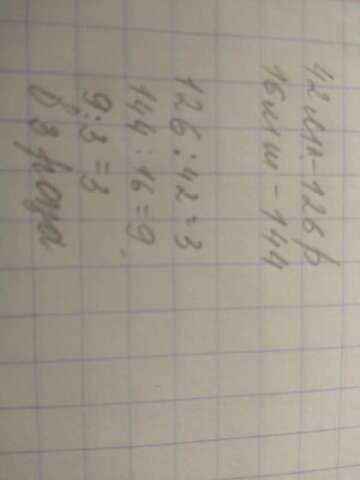 42 лин.-126 р
16 лин - 144
126:42=3
144:16=9
9:3=3
в 3 раза